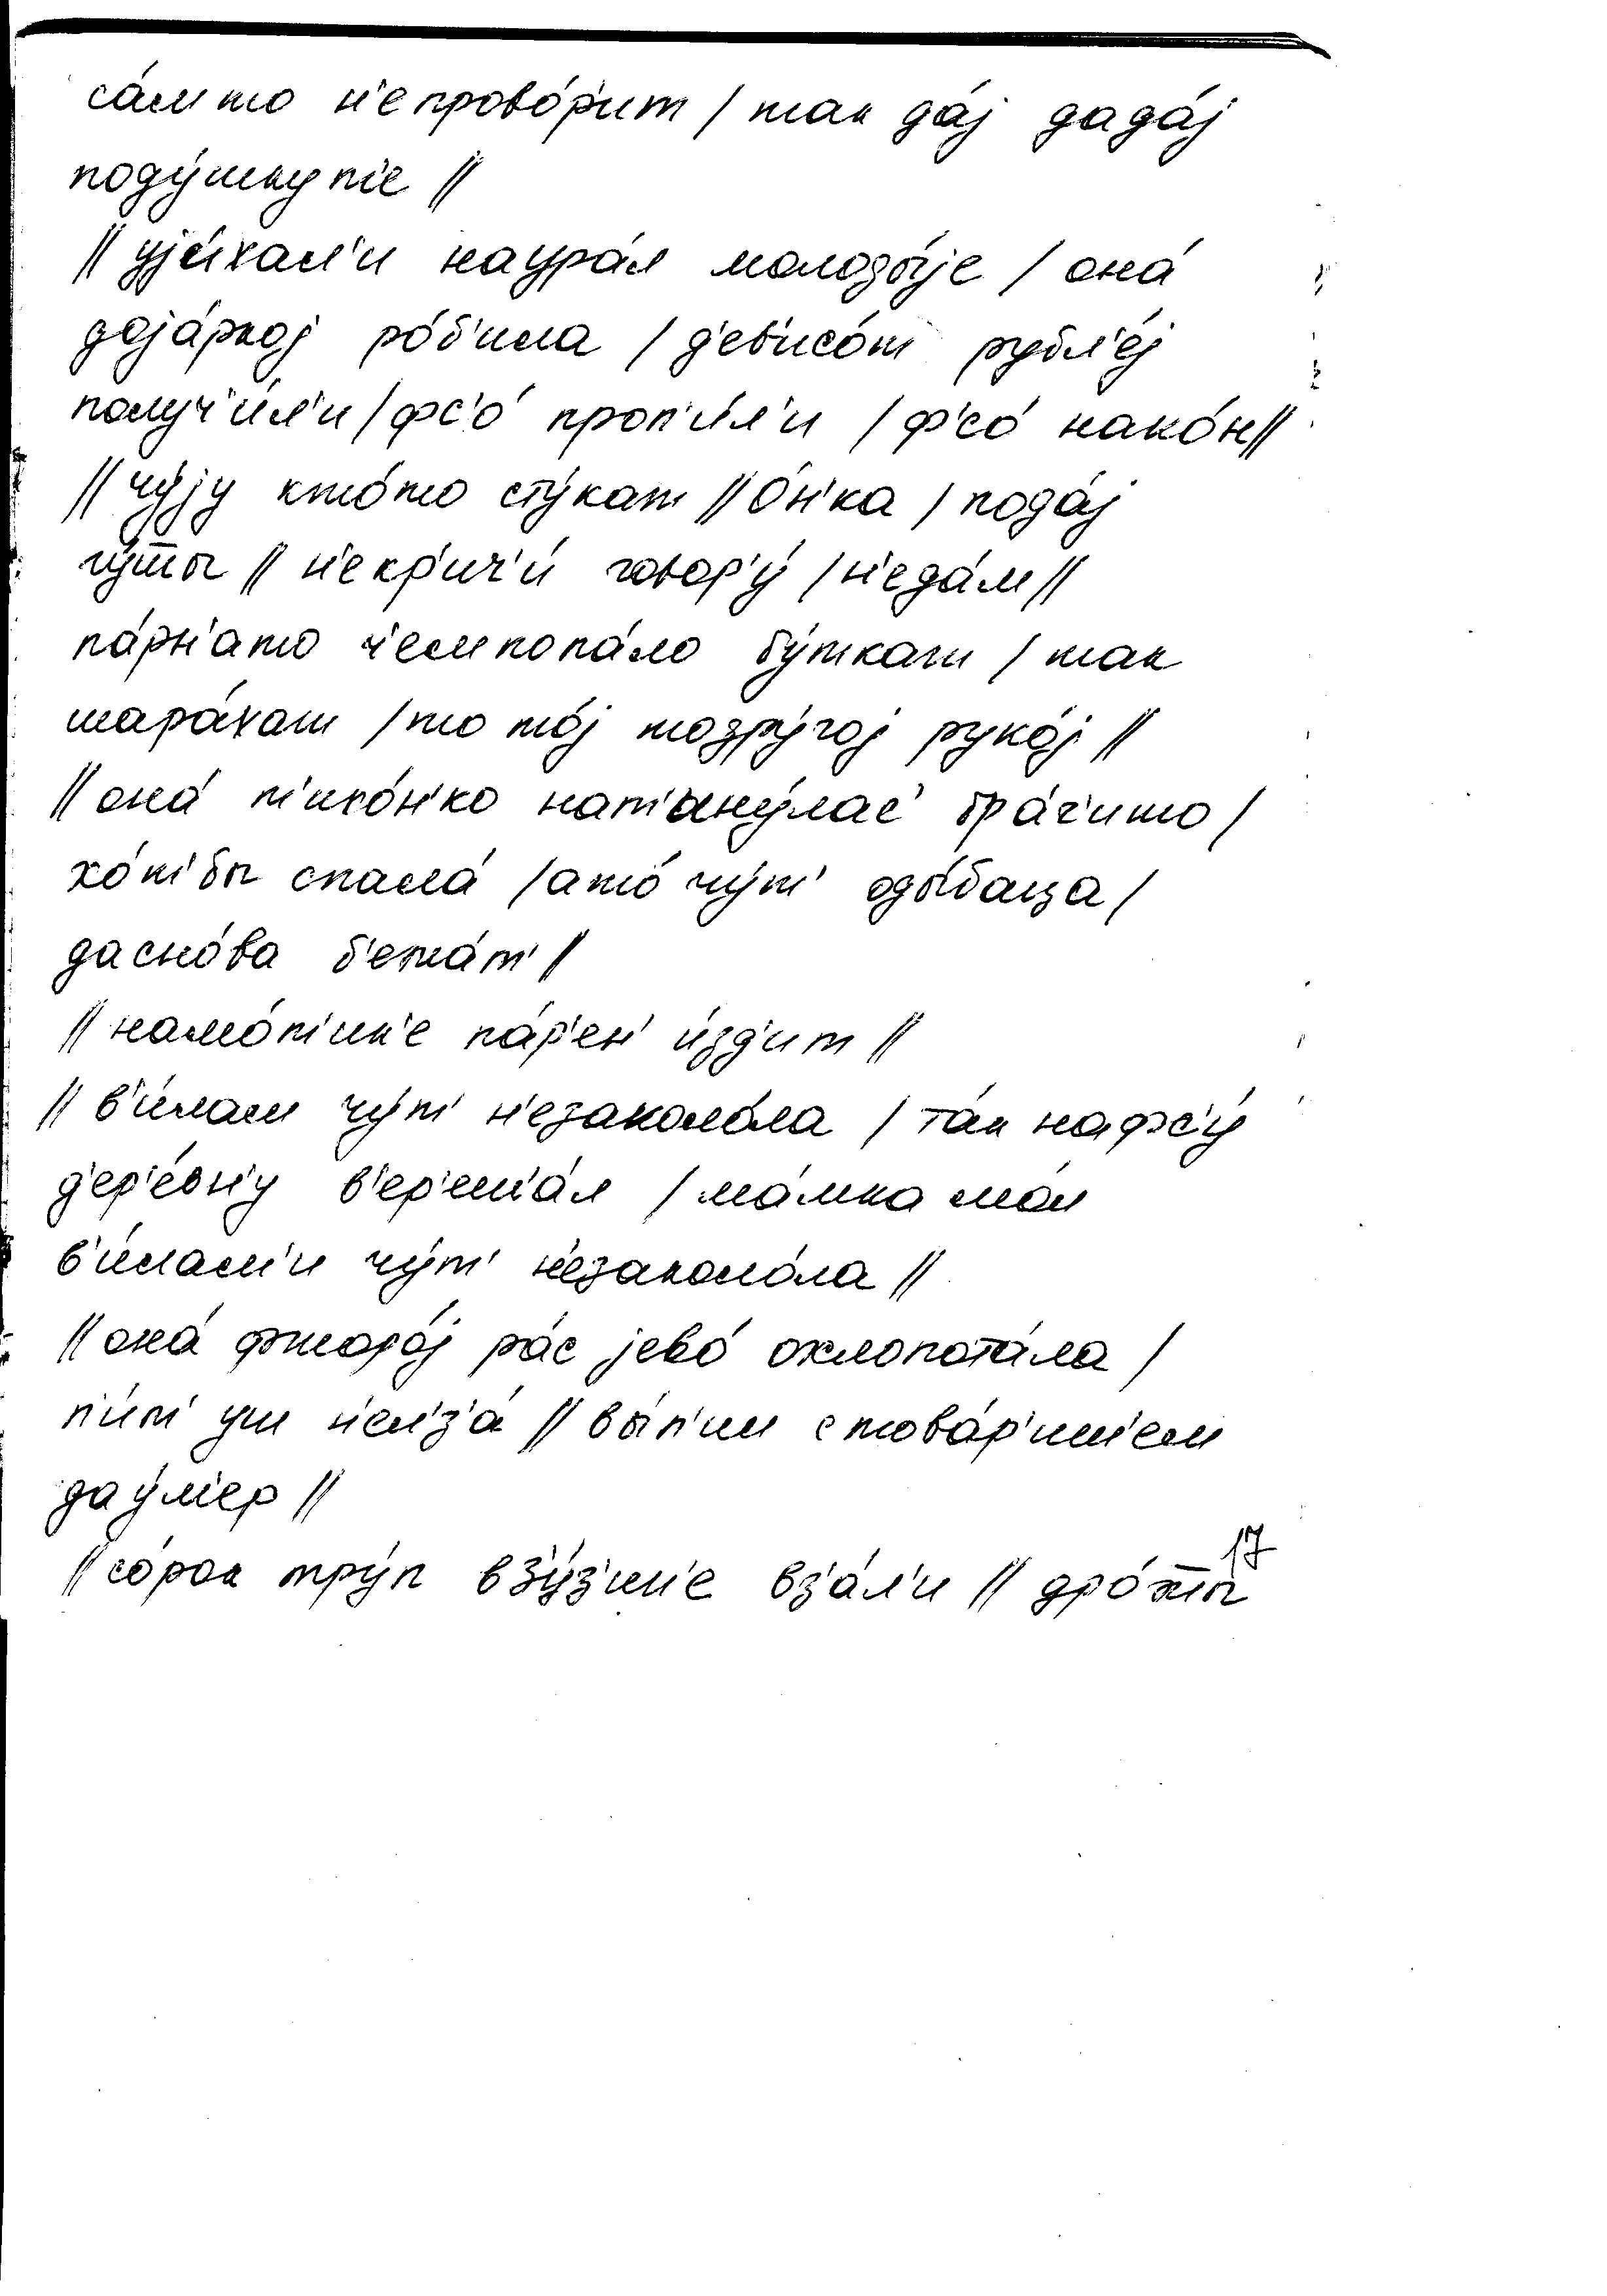 са́мто н'епрово́р'ит / так да́j дада́j
поду́шкуп'е //
// уjи́хал'и наура́л молоды́jе / она́
доjа́ркоj ро́б'ила / д'ев'исо́т рубл'е́j
получ'и́л'и / фс'о́ проп'и́л'и / ф'со́ нако́н //
// чу́jу кто́то сту́кат // О́н'ка / пода́j
гу́ты // н'екр'ич'и́ говор'у́ / н'еда́м //
па́рн'ато ч'емпопа́ло бу́ткат / так
шара́хат / то то́j тодру́гоj руко́j //
// она́ п'ишо́н'ко нат'ину́лас' бра́г'ито /
хо́т'бы спала́ / ато́ чу́т' оды́баца /
дасно́ва б'ежа́т' //
// намо́п'ик'е па́р'ен' и́зд'ит //
// в'и́лам чу́т' н'езаколо́ла / та́к нафс'у́
д'ер'е́вн'у в'ер'еш'а́л / ма́мка мол
в'и́лам'и чу́т' н'езаколо́ла //
// она́ фторо́j ра́с jево́ охлопота́ла /
п'и́т' уш н'ел'з'а́ // вы́п'им стова́р'иш'ем
дау́м'ер //
// со́рок тру́п вз'у́з'ик'е вз'а́л'и // дро́жты
17